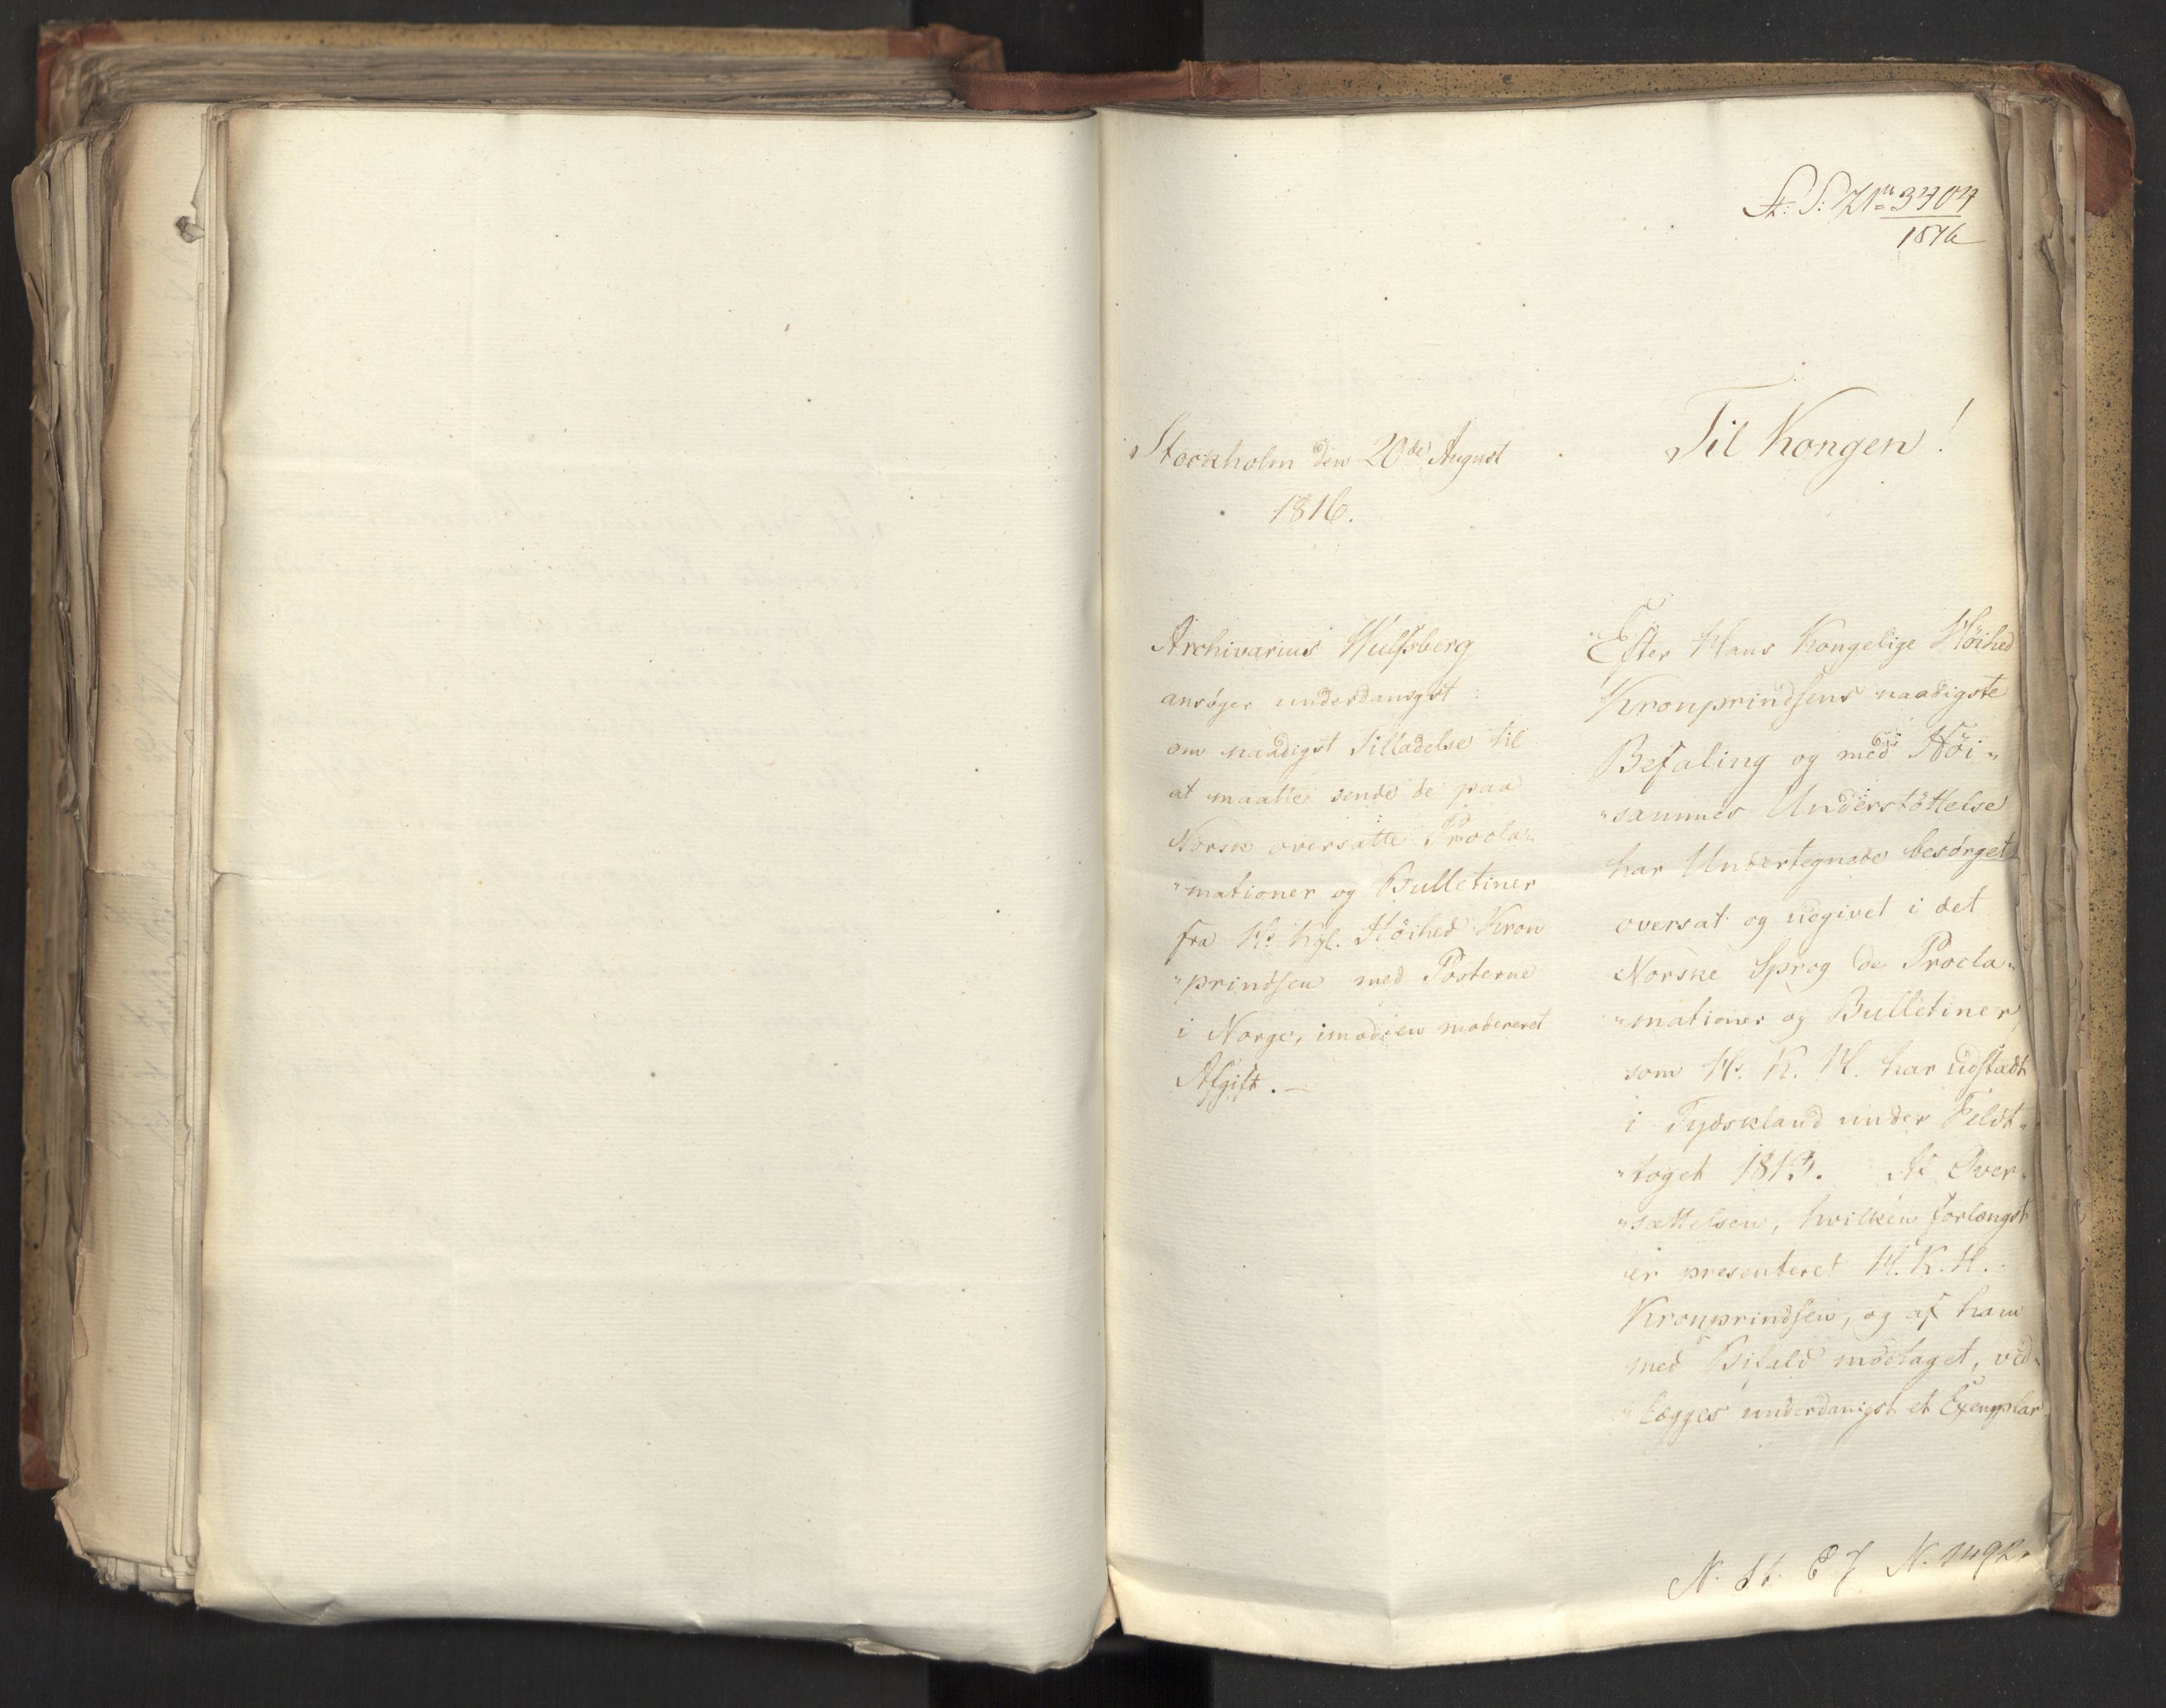 St: S: No 3404
1816
Stockholm den 20de August
1816.
Archivarius Wulfsberg
ansøger underdanigst
om naadigst Tilladelse til
at maatte sende de paa
Norsk oversatte Procla„
„mationer og Bulletiner
fra Hs Kgl. Höihed Kron
„prindsen med Posterne
i Norge, imod en modereret
Afgift. —
Til Kongen!
Efter Hans Kongelige Höihed
Kronprindsens naadigste
Befaling og med Höi„
„sammes Understöttelse
har Undertegnede besørget
oversat og udgivet i det
Norske Sprog de Procla„
„mationer og Bulletiner,
som Hs. K. H. har udstædt
i Tydskland under Feldt„
„toget 1813. Af Over„
„sættelsen, hvilken forlængst
er presenteret H. K. H.
Kronprindsen, og af ham
med Bifald modtaget, ved„
„lægges underdanigst et Exemplar
N. St. E J N. 1492.